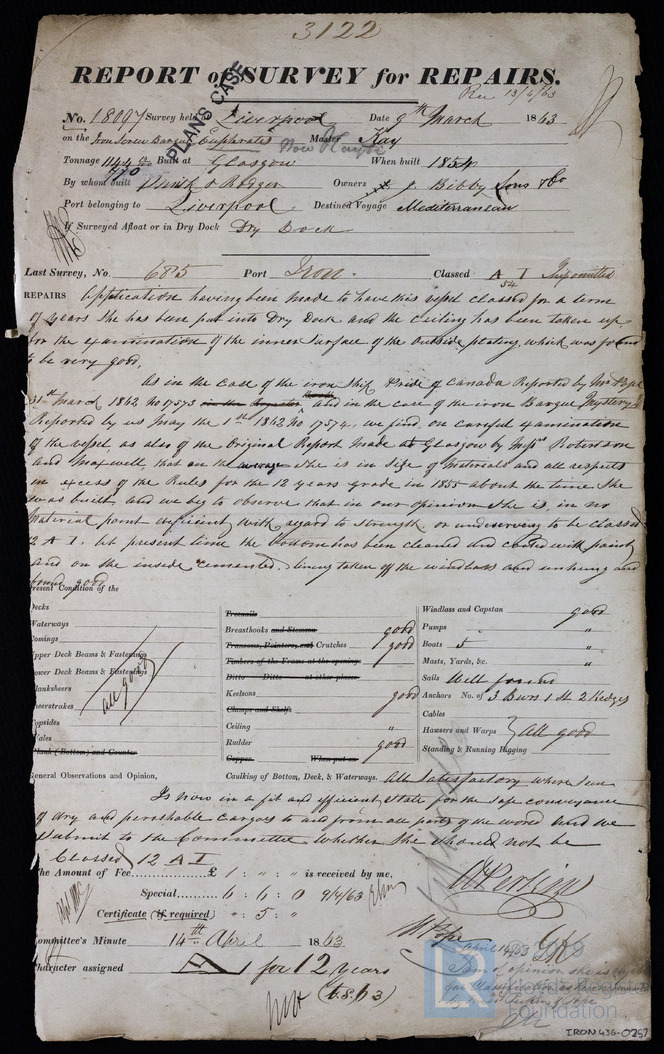 3122
REPORT of SURVEY for REPAIRS.
PLANS CASE
Rec 13/4/63
No. 18097 Survey held Liverpool Date 9th March 1863
on the Iron Screw Barque Euphrates Master Kay
Now
Tonnage 1144 Built at Glasgow When built 1854
770
By whom built Smith & Rodger Owners J. Bibby Sons & Co
Port belonging to Liverpool Destined Voyage Mediterranean
If Surveyed Afloat or in Dry Dock Dry Dock
Last Survey, No. 685 Port Iron. Classed A 1
54
REPAIRS Application having been made to have this vessel classed for a term
of years she has been put into Dry Dock and the ceiling has been taken up
for the examination of the inner surface of the outside plating, which was found
to be very good.
As in the case of the iron ship Pride of Canada Reported by Mr Pope
31st March 1862 No 17573 and in the case of the iron Barque Mystery
Reported by us May the 1st 1862 No 17574, we find, on careful examination
of the vessel, as also of the Original Report made at Glasgow by Messrs Robertson
and Maxwell, that on the average she is in size of Materials and all respects
in excess of the Rules for the 12 years grade in 1855 about the time she
was built and we beg to observe that in our opinion she is, in no
Material point deficient with regard to strength, or undeserving to be classed
12 A 1. At present time the bottom has been cleaned and coated with paint
and on the inside cemented. lining taken off the windlass and unhung and
found good
Present Condition of the
Decks
Waterways
Comings
Upper Deck Beams & Fastenings
Lower Deck Beams & Fastenings
Planksheers
Sheerstrakes
Topsides
Wales
Plank (Bottom) and Counter
all good
Treenails
Breasthooks and Stemson good
Transoms, Pointers, and Crutches good
Timbers of the Frame at the openings
Ditto Ditto at other places
Keelsons good
Clamps and Shelfs
Ceiling "
Rudder good
Copper When put on
Windlass and Capstan good
Pumps "
Boats 5 "
Masts, Yards, &c. "
Sails Well found
Anchors No. of 3 Bowrs 1 St 2 Kedges
Cables
Hawsers and Warps } All good
Standing & Running Rigging
General Observations and Opinion, Caulking of Bottom, Deck, & Waterways. All Satisfactory where seen
Is now in a fit and efficient State for the safe conveyance
of dry and perishable Cargoes to and from all parts of the world and we
Submit to the Committee whether she should not be
Classed 12 A 1
The Amount of Fee............ £ 1 : " : " is received by me,
Special.......... 6 : 6 : 0 9/4/63
Certificate (if required) " : 5 : "
W Pope
Committee's Minute 14th April 1863
Character assigned A 1 for 12 years
(t.S.63)
April 14/63 GK
I am of opinion she is
for Classification as
LR
Foundation
IRON436-0257